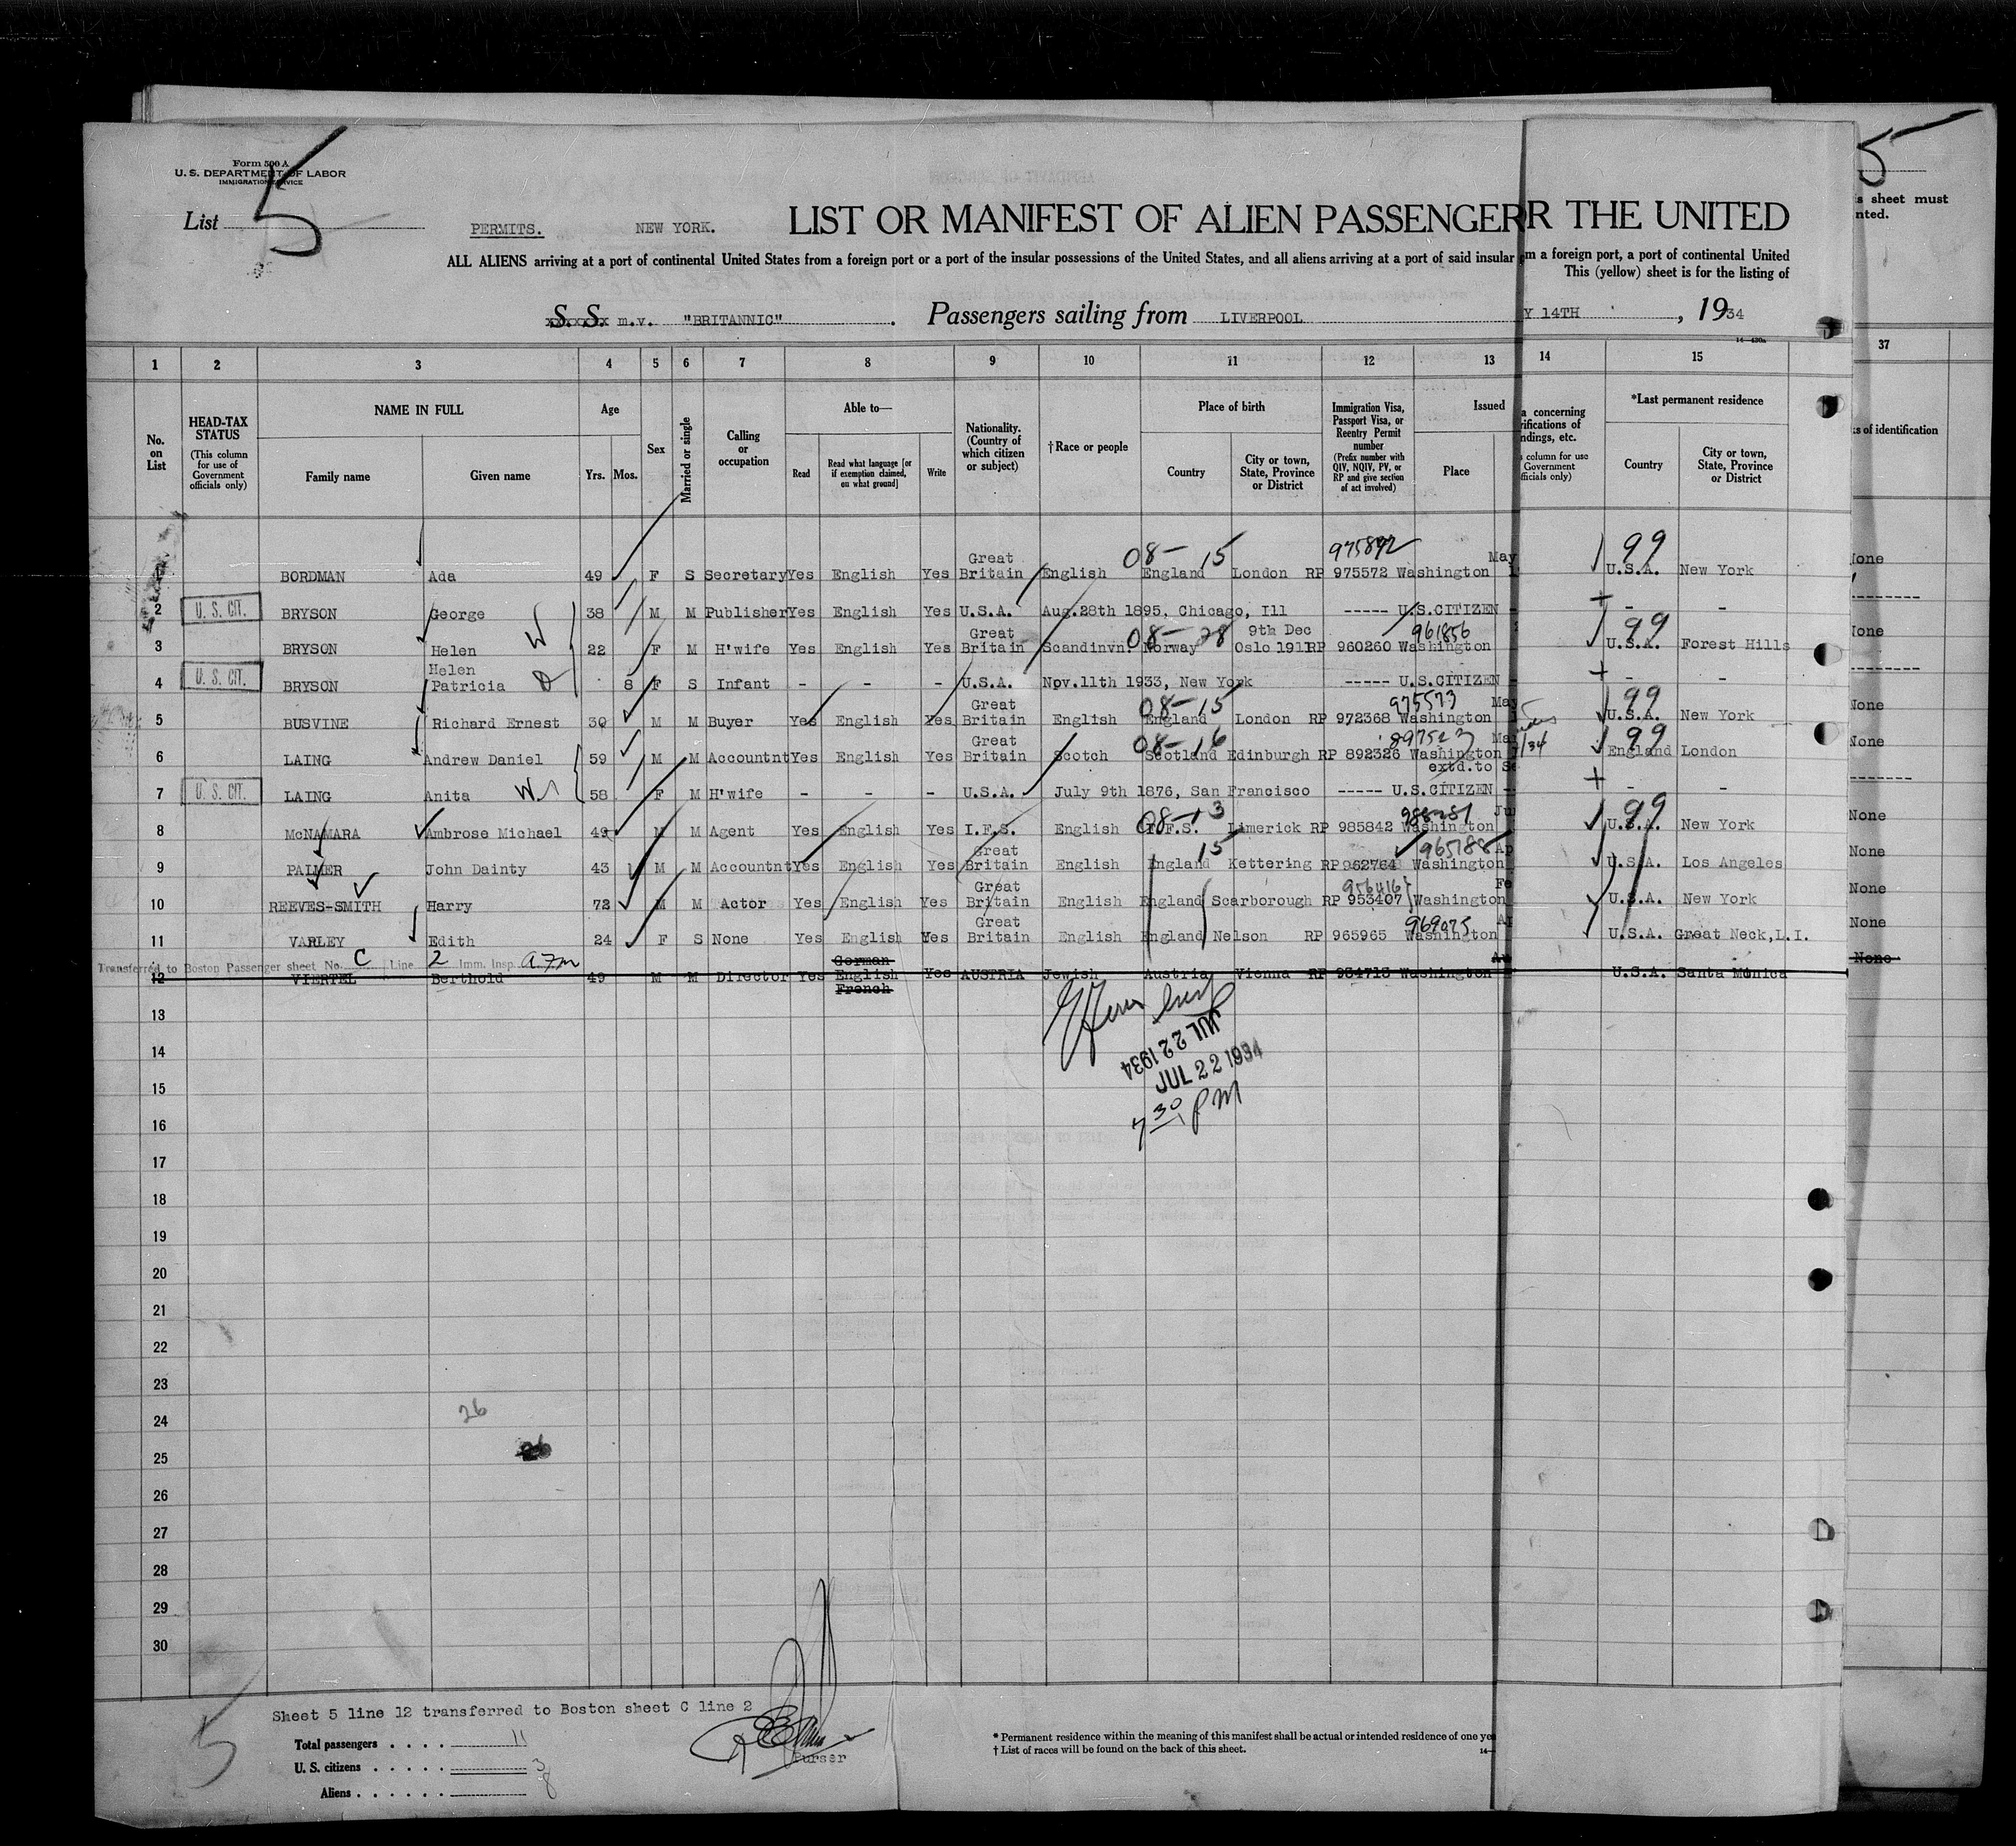 Form 500 A
U. S. DEPARTMENT OF LABOR
IMMIGRATION SERVICE
List 5
PERMITS. NEW YORK. LIST OR MANIFEST OF ALIEN PASSENGER R THE UNITED
ALL ALIENS arriving at a port of continental United States from a foreign port or a port of the insular possessions of the United States, and all aliens arriving at a port of said insular m a foreign port, a port of continental United
This (yellow) sheet is for the listing of
S. S. m.v. "BRITANNIC" . Passengers sailing from LIVERPOOL Y 14TH , 1934
5
s sheet must
nted.
1 2 3 4 5 6 7 8 9 10 11 12 13 14 15 37
No. on List
HEAD-TAX STATUS (This column for use of Government officials only)
NAME IN FULL
Family name Given name
Age Yrs. Mos.
Sex
Married or single
Calling or occupation
Able to—
Read Read what language [or if exemption claimed, on what ground] Write
Nationality. (Country of which citizen or subject)
† Race or people
Place of birth
Country City or town, State, Province or District
Immigration Visa, Passport Visa, or Reentry Permit number (Prefix number with QIV, NQIV, PV, or RP and give section of act involved)
Issued
Place
a concerning rifications of ndings, etc.
column for use Government fficials only)
*Last permanent residence
Country City or town, State, Province or District
s of identification
1 BORDMAN Ada 49 F S Secretary Yes English Yes Great Britain English 08-15 England London RP 975572 975892 Washington May 99 U.S.A. New York None
2 U. S. CIT. BRYSON George 38 M M Publisher Yes English Yes U.S.A. Aug.28th 1895, Chicago, Ill ----- U.S.CITIZEN + - -
3 BRYSON Helen W 22 F M H'wife Yes English Yes Great Britain Scandinvn. 08-28 Norway 9th Dec Oslo 1911 RP 960260 961856 Washington 99 U.S.A. Forest Hills None
4 U. S. CIT. BRYSON Helen Patricia D 8 F S Infant - - - U.S.A. Nov.11th 1933, New York ----- U.S.CITIZEN + - -
5 BUSVINE Richard Ernest 30 M M Buyer Yes English Yes Great Britain English 08-15 England London RP 972368 975573 Washington May 99 U.S.A. New York None
6 LAING Andrew Daniel 59 M M Accountnt Yes English Yes Great Britain Scotch 08-16 Scotland Edinburgh RP 892326 897523 Washington extd.to 99 England London None
7 U. S. CIT. LAING Anita W 58 F M H'wife - - - U.S.A. July 9th 1876, San Francisco ----- U.S.CITIZEN + - -
8 McNAMARA Ambrose Michael 49 M M Agent Yes English Yes I.F.S. English 08-13 I.F.S. Limerick RP 985842 Washington 99 U.S.A. New York None
9 PALMER John Dainty 43 M M Accountnt Yes English Yes Great Britain English 15 England Kettering RP 962764 965188 Washington Ap U.S.A. Los Angeles None
10 REEVES-SMITH Harry 72 M M Actor Yes English Yes Great Britain English England Scarborough RP 953407 956416 Washington Fe U.S.A. New York None
11 VARLEY Edith 24 F S None Yes English Yes Great Britain English England Nelson RP 965965 969075 Washington U.S.A. Great Neck,L.I. None
Transferred to Boston Passenger sheet No. C Line 2 Imm. Insp. a7m
12 VIERTEL Berthold 49 M M Director Yes German English French Yes AUSTRIA Jewish Austria Vienna RP 934713 Washington U.S.A. Santa Monica None
13
JUL 22 1934
14
JUL 22 1934
15
7 30 PM
16
17
18
19
20
21
22
23
24
26
25
26
26
27
28
29
30
Sheet 5 line 12 transferred to Boston sheet C line 2
Purser
Total passengers . . . . 11
U. S. citizens . . . . . . 3
Aliens . . . . . . 8
5
* Permanent residence within the meaning of this manifest shall be actual or intended residence of one ye
† List of races will be found on the back of this sheet.